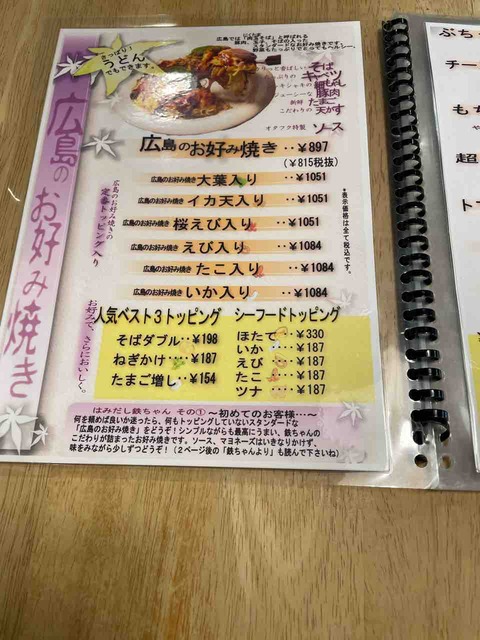 広島のお好み焼き
さっぱり!
うどん
でもできます。
広島では「肉玉そば」と呼ばれる
豚肉、玉子、そばの入った
スタンダードなお好み焼きです。
野菜もたっぷりでとってもヘルシー。
そば
キャベツ
細もやし
豚肉
新鮮 たまご
こだわりの 天かす
オタフク特製 ソース
広島のお好み焼き ‥¥897
(¥815税抜)
広島のお好み焼きの
定番トッピング入り
広島のお好み焼き 大葉入り ‥¥1051
広島のお好み焼き イカ天入り ‥¥1051
広島のお好み焼き 桜えび入り ‥¥1051
広島のお好み焼き えび入り ‥¥1084
広島のお好み焼き たこ入り ‥¥1084
広島のお好み焼き いか入り ‥¥1084
*表示価格は全て税込です。
お好みで、さらにおいしく。
人気ベスト3トッピング
そばダブル‥¥198
ねぎかけ‥¥187
たまご増し‥¥154
シーフードトッピング
ほたて‥¥330
いか‥¥187
えび‥¥187
たこ‥¥187
ツナ‥¥187
はみだし鉄ちゃん その① ～初めてのお客様…～
何を頼めば良いか迷ったら、何もトッピングしていないスタンダードな
「広島のお好み焼き」をどうぞ!シンプルながらも最高にうまい、鉄ちゃんの
こだわりが詰まったお好み焼きです。ソース、マヨネーズはいきなりかけず、
味をみながら少しずつどうぞ!(2ページ後の「鉄ちゃんより」も読んで下さいね)
ぶち
チー
もち
超
ト